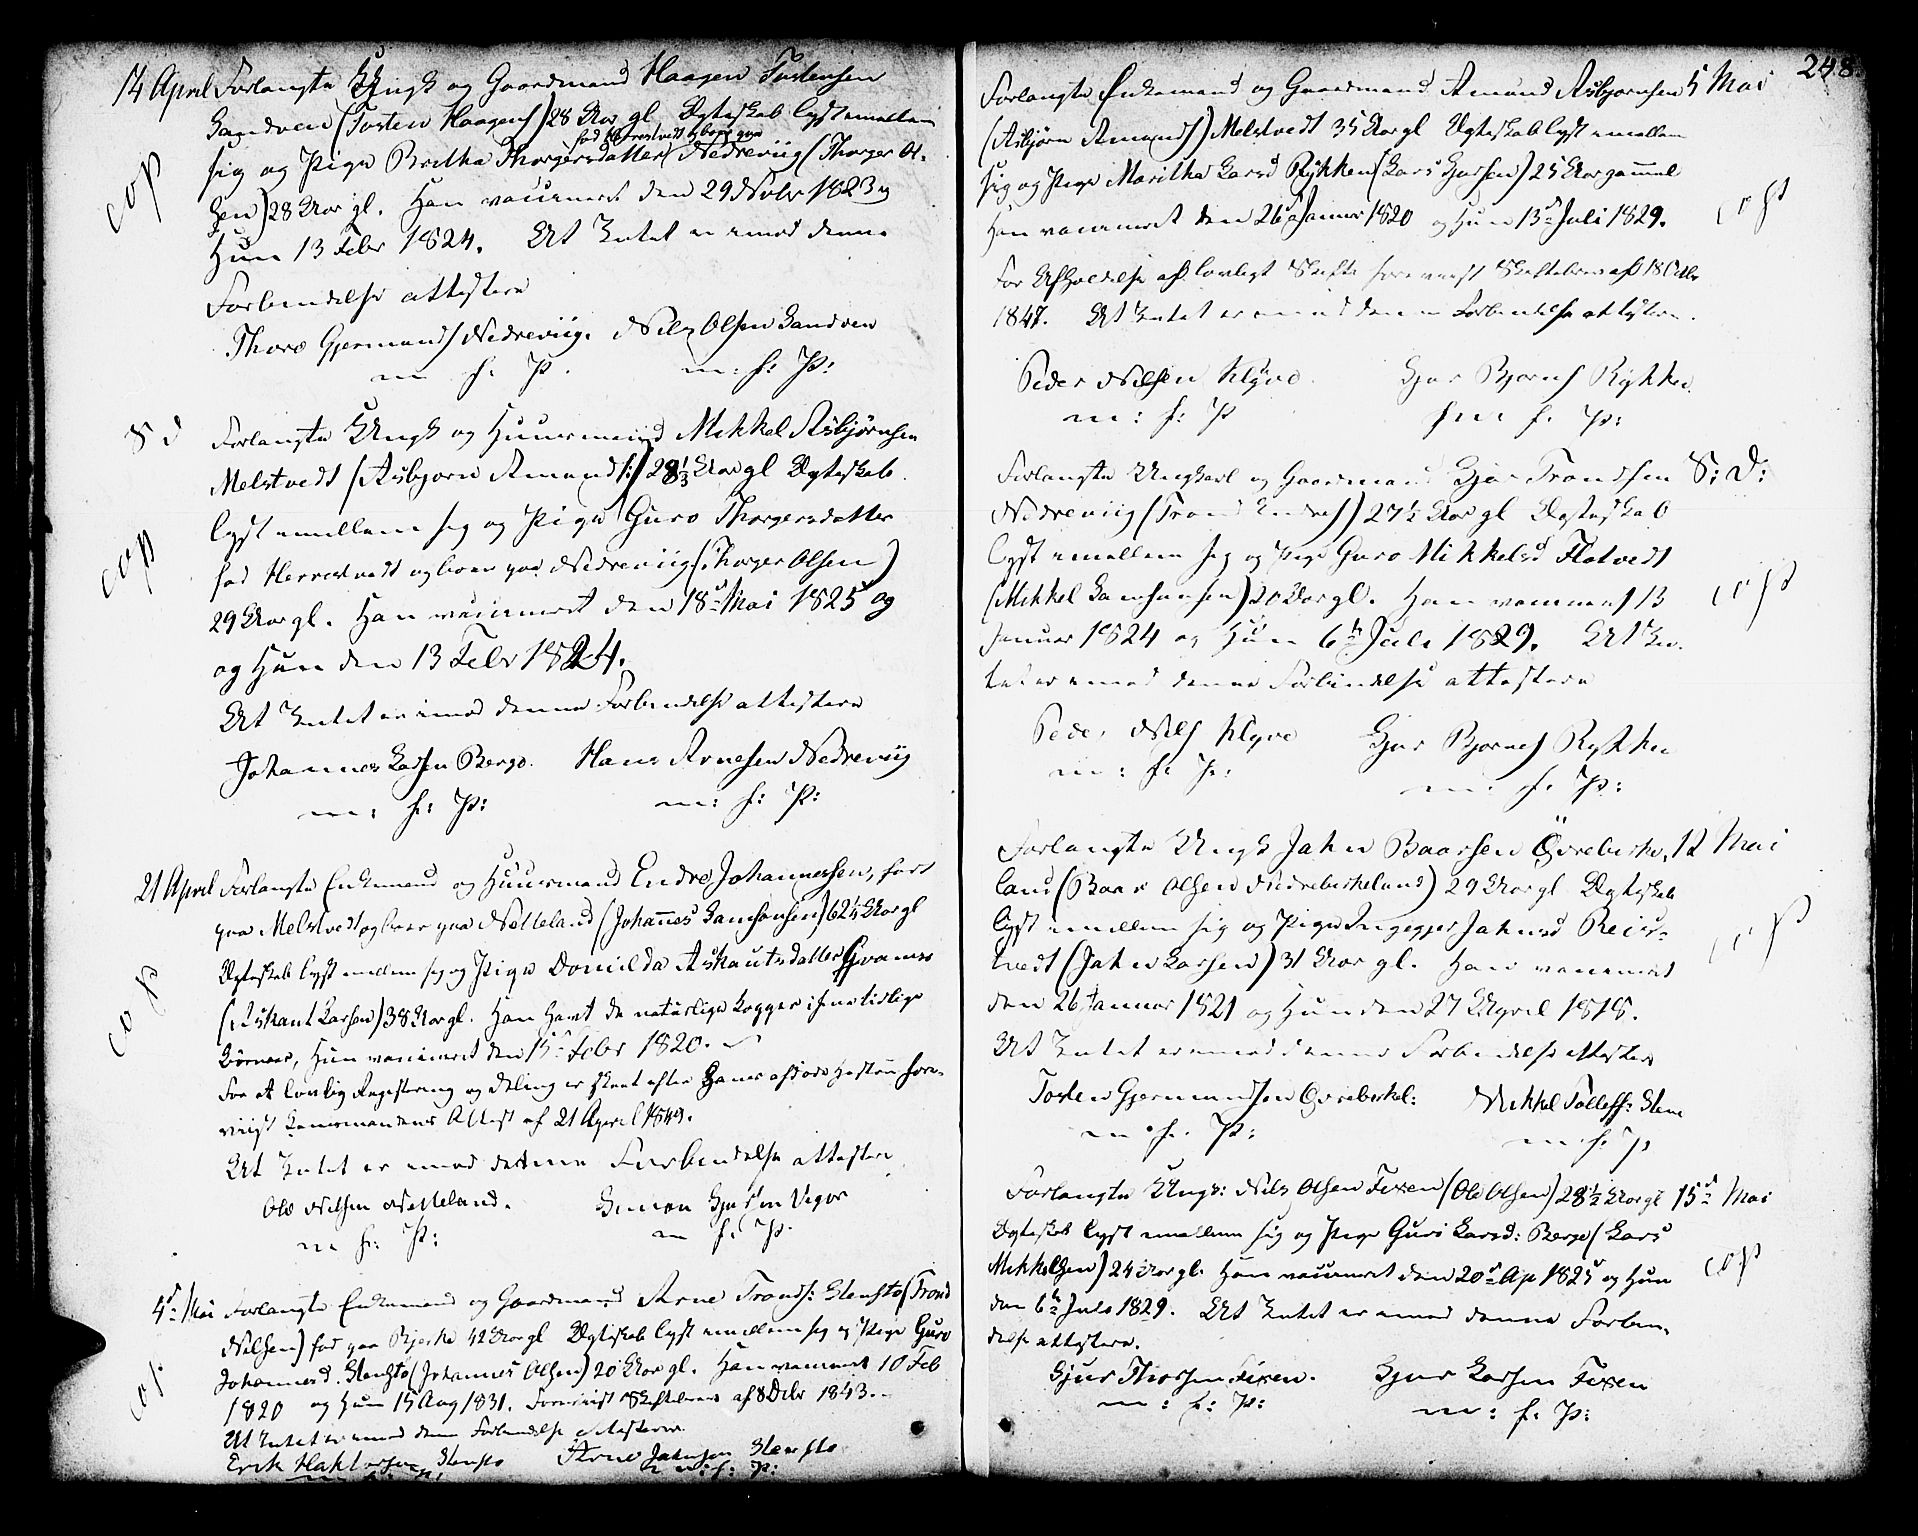 14 April Forlangte Ungk og Gaardmand Haagen Torstensen
Sandven (Torsten Haagens) 28 Aar gl Ægteskab lyst emellem
fød Herrestvedt og boer paa
sig og Pige Britha Thorgersdatter Nedreviig (Thorger Ol-
sen) 28 Aar gl. Han vaccineret den 29 Novbr 1823 og
Hun 13 Febr 1824. At Intet er imod denne
Forbindelse attestere
Thore Gjermunds Nedreviig. Nils Olsen Sandven
m f: P. m: f: P:
cop
S D
Forlangte Ungk og Huusmand Mikkel Asbjørnsen
Melstvedt (Asbjørn Amunds:) 28 1/3 Aar gl Ægteskab
lyst emellem sig og Pige Guro Thorgersdatter
fød Herrestvedt og boer paa Nedreviig (Thorger Olsen)
29 Aar gl. Han vaccineret den 18d Mai 1825 og
og Hun den 13 Febr 1824.
At Intet er imod denne Forbindelse attestere
Johannes Larsen Berge. Hans Arnesen Nedreviig
m: f: P: m: f: P:
cop
21 April Forlangte Enkemand og Huusmand Endre Johannessen, født
paa Melstvedt og boer paa Netteland (Johannes Samsonsen) 62 1/2 Aar gl
Ægteskab lyst emellem sig og Pige Domilda Askautsdatter
(Askaut Larsen) 38 Aar gl. Han havt de naturlige Kopper i sine tidlige
Børneaar, Hun vaccineret den 15d Febr 1820.
For at lovlig Registrering og Deling er skeet efter Hans afdøde Hustru fore-
viist Lensmandens Attest af 21 April 1849.
At Intet er imod denne Forbindelse attestere
Ole Nilsen Netteland. Simon Gjursen Vigør
m f: P: m f: P:
cop
4d Mai Forlangte Enkemand og Gaardmand Arne Tronds: Stensto (Trond
Nilsen) fød paa Bjerke 42 Aar gl Ægteskab lyst emellem sig og Pige Guro
Johannesd. Stensto (Johannes Olsen) 20 Aar gl. Han vaccineret 10 Feb
1820 og Hun 15 Aug 1831. Foreviist Skiftebrev af 8 Decbr 1843.
At Intet er imod denne Forbindelse attestere
Erik Stensto Arne Johnsen Stensto
m: f: P:
cop.
248.
Forlangte Enkemand og Gaardmand Amund Asbjørnsen 5 Mai
(Asbjørn Amunds) Melstvedt 35 Aar gl Ægteskab lyst emellem
sig og Pige Maritha Larsd Rykken (Lars Gjursen) 25 Aar gammel
Han vaccineret den 26d Januar 1820 og Hun 13d Juli 1829.
For Afholdelse af lovligt Skifte foreviist Skiftebrev af 18 Octbr
1847. At Intet er imod denne Forbindelse attestere.
Peder Nilsen Klyve. Gjur Bjørns Rykken
m: f: P m: f. P:
cop
Forlangte Ungkarl og Gaardmand Gjur Trondsen S: D:
Nedreviig (Trond) 27 1/2 Aar gl Ægteskab
lyst emellem sig og Pige Guro Mikkelsd Flotvedt
(Mikkel Samsonsen) 20 Aar gl. Han vaccineret 13
Januar 1824 og Hun 6te Juli 1829. At In-
tet er imod denne Forbindelse attestere
Peder Nils Klyve Gjur Bjørns Rykken
m: f: P: m: f. P:
cop
Forlangte Ungk John Baarsen Øvrebirke- 12 Mai
land (Baar Olsen Nedrebirkeland) 29 Aar gl Ægteskab
lyst emellem sig og Pige Ingegjer Johnsd Reis-
tvedt (John Larsen) 31 Aar gl. Han vaccineret
den 26 Januar 1821 og Hun den 27 April 1818.
At Intet er imod denne Forbindelse attestere
Torsten Gjermundsen Øvrebirkel: Mikkel Tollefs: Stene
m: f. P: m: f: P
cop
Forlangte Ungk: Nils Olsen Fixen (Ole Olsen) 28 1/2 Aar gl 15d Mai
Ægteskab lyst emellem sig og Pige Guri Larsd: Berge (Lars
Mikkelsen) 24 Aar gl. Han vaccineret den 20d Ap 1825 og Hun
den 6te Juli 1829. At Intet er imod denne Forbin-
delse attestere.
Gjur Thorsen Fixen. Gjur Larsen Fixen
m: f: P: m: f. P:
cop